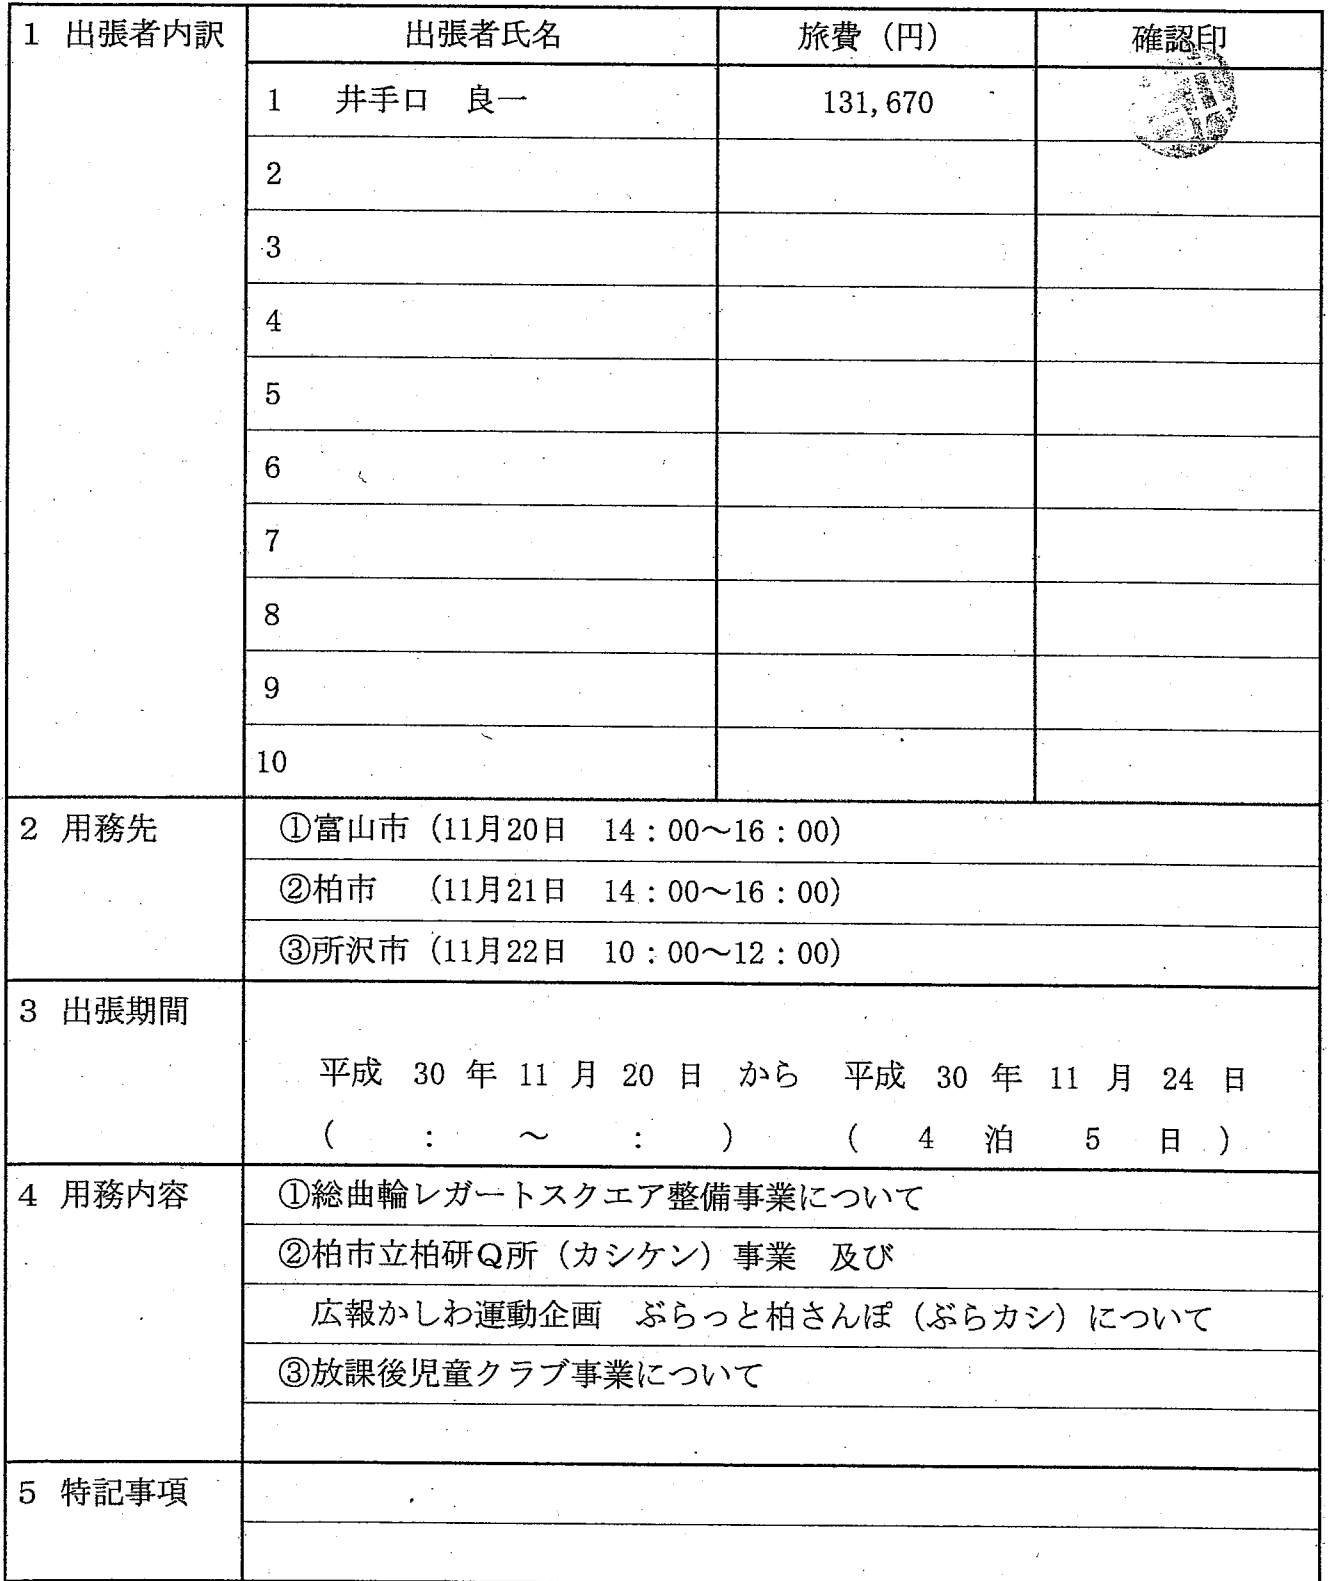 1 出張者内訳 出張者氏名 旅費（円） 確認印
1 井手口 良一 131,670
2
3
4
5
6
7
8
9
10
2 用務先 ①富山市（11月20日 14：00～16：00）
②柏市 （11月21日 14：00～16：00）
③所沢市（11月22日 10：00～12：00）
3 出張期間
平成 30 年 11 月 20 日 から 平成 30 年 11 月 24 日
（ ： ～ ： ） （ 4 泊 5 日 ）
4 用務内容 ①総曲輪レガートスクエア整備事業について
②柏市立柏研Q所（カシケン）事業 及び
広報かしわ運動企画 ぶらっと柏さんぽ（ぶらカシ）について
③放課後児童クラブ事業について
5 特記事項